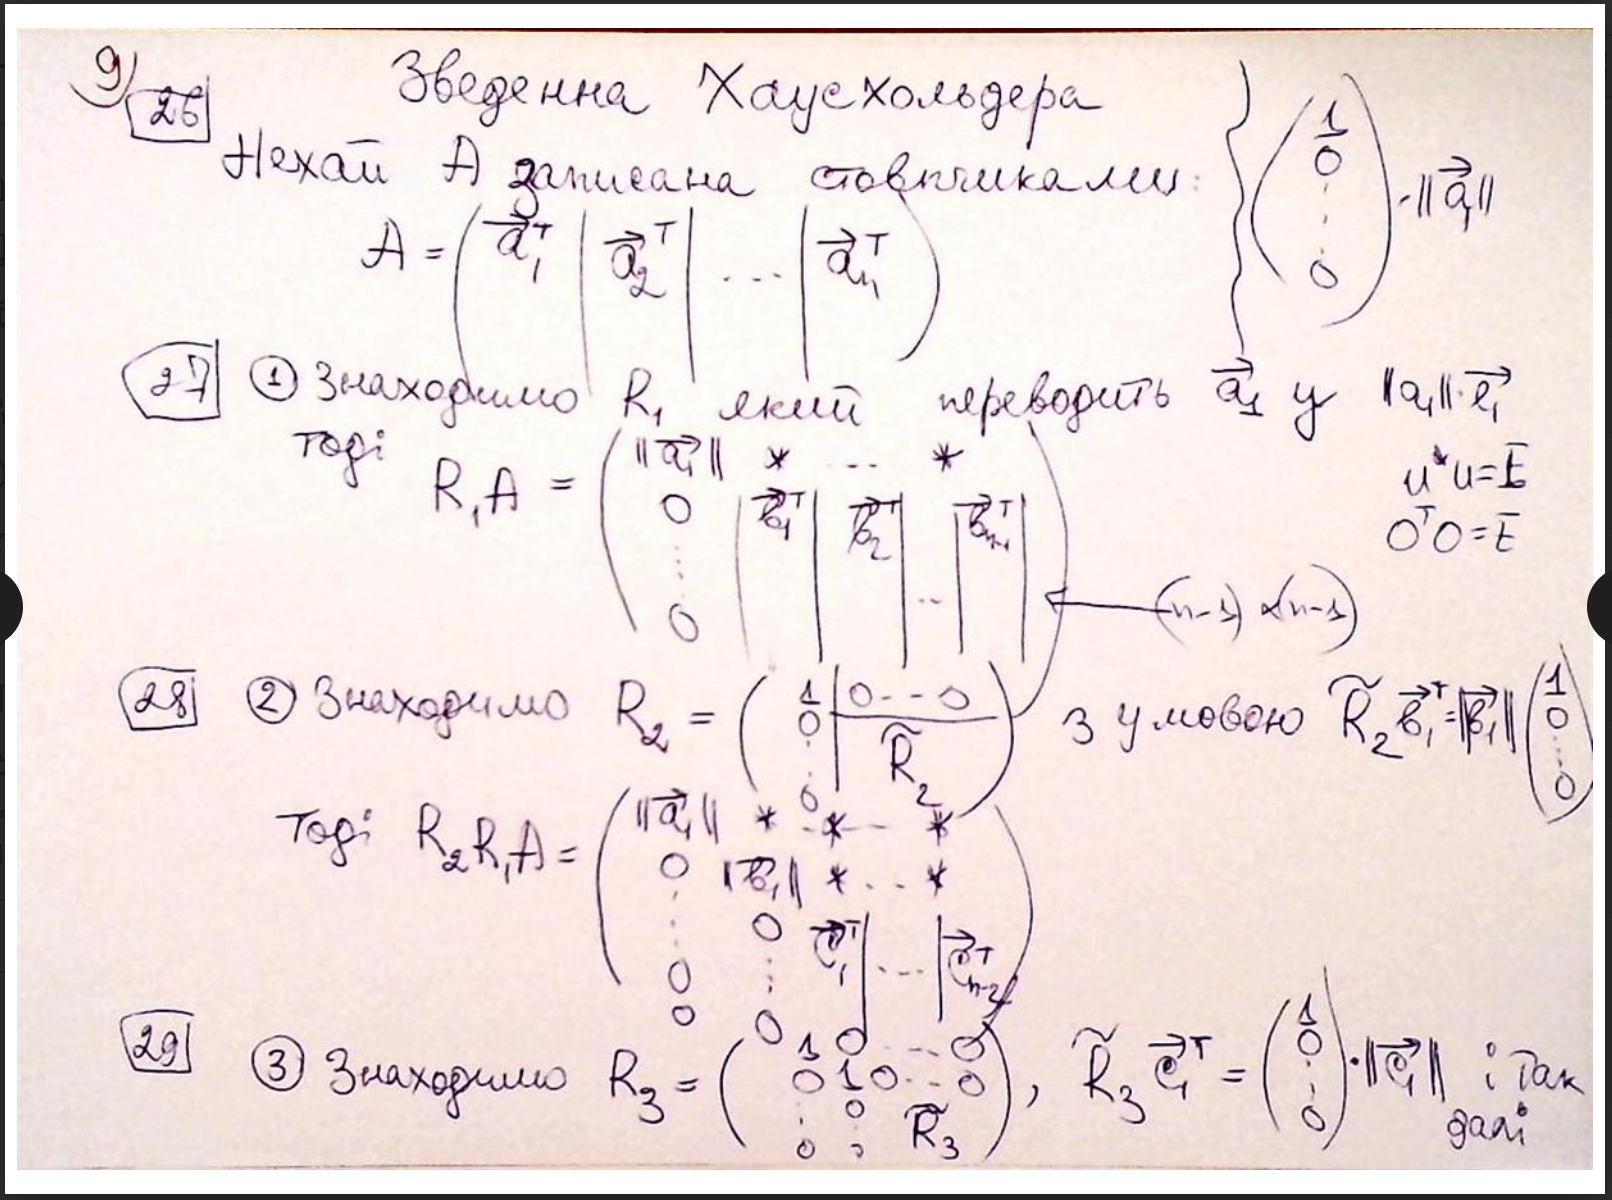 9)
26 Зведенна Хаусхольдера
Нехай A записана стовпчиками:
A = ( a⃗₁ᵀ | a⃗₂ᵀ | ... | a⃗ₙᵀ )
( 1 0 ⋮ 0 ) · ||a⃗₁||
27 ① Знаходимо R₁ який переводить a⃗₁ у ||a₁||·e⃗₁
тоді R₁A = ( ||a⃗₁|| * ... *
0 | b⃗₁ᵀ | b⃗₂ᵀ | ... | b⃗ₙ₋₁ᵀ |
⋮
0 ) ← (n-1)×(n-1)
u*u=E
OᵀO=E
28 ② Знаходимо R₂ = ( 1 | 0 --- 0
0 ⋮ 0 | R̃₂ ) з умовою R̃₂ b⃗₁ᵀ = ||b⃗₁|| ( 1 0 ⋮ 0 )
тоді R₂R₁A = ( ||a⃗₁|| * - * -- *
0 ||b⃗₁|| * ... *
⋮ 0 c⃗₁ᵀ | ... | c⃗ₙ₋₂ᵀ
0 ⋮
0 0 )
29 ③ Знаходимо R₃ = ( 1 0 ... 0
0 1 0 ... 0
⋮ 0 R̃₃
0 0 ) , R̃₃ c⃗₁ᵀ = ( 1 0 ⋮ 0 ) · ||c⃗₁|| і так
далі